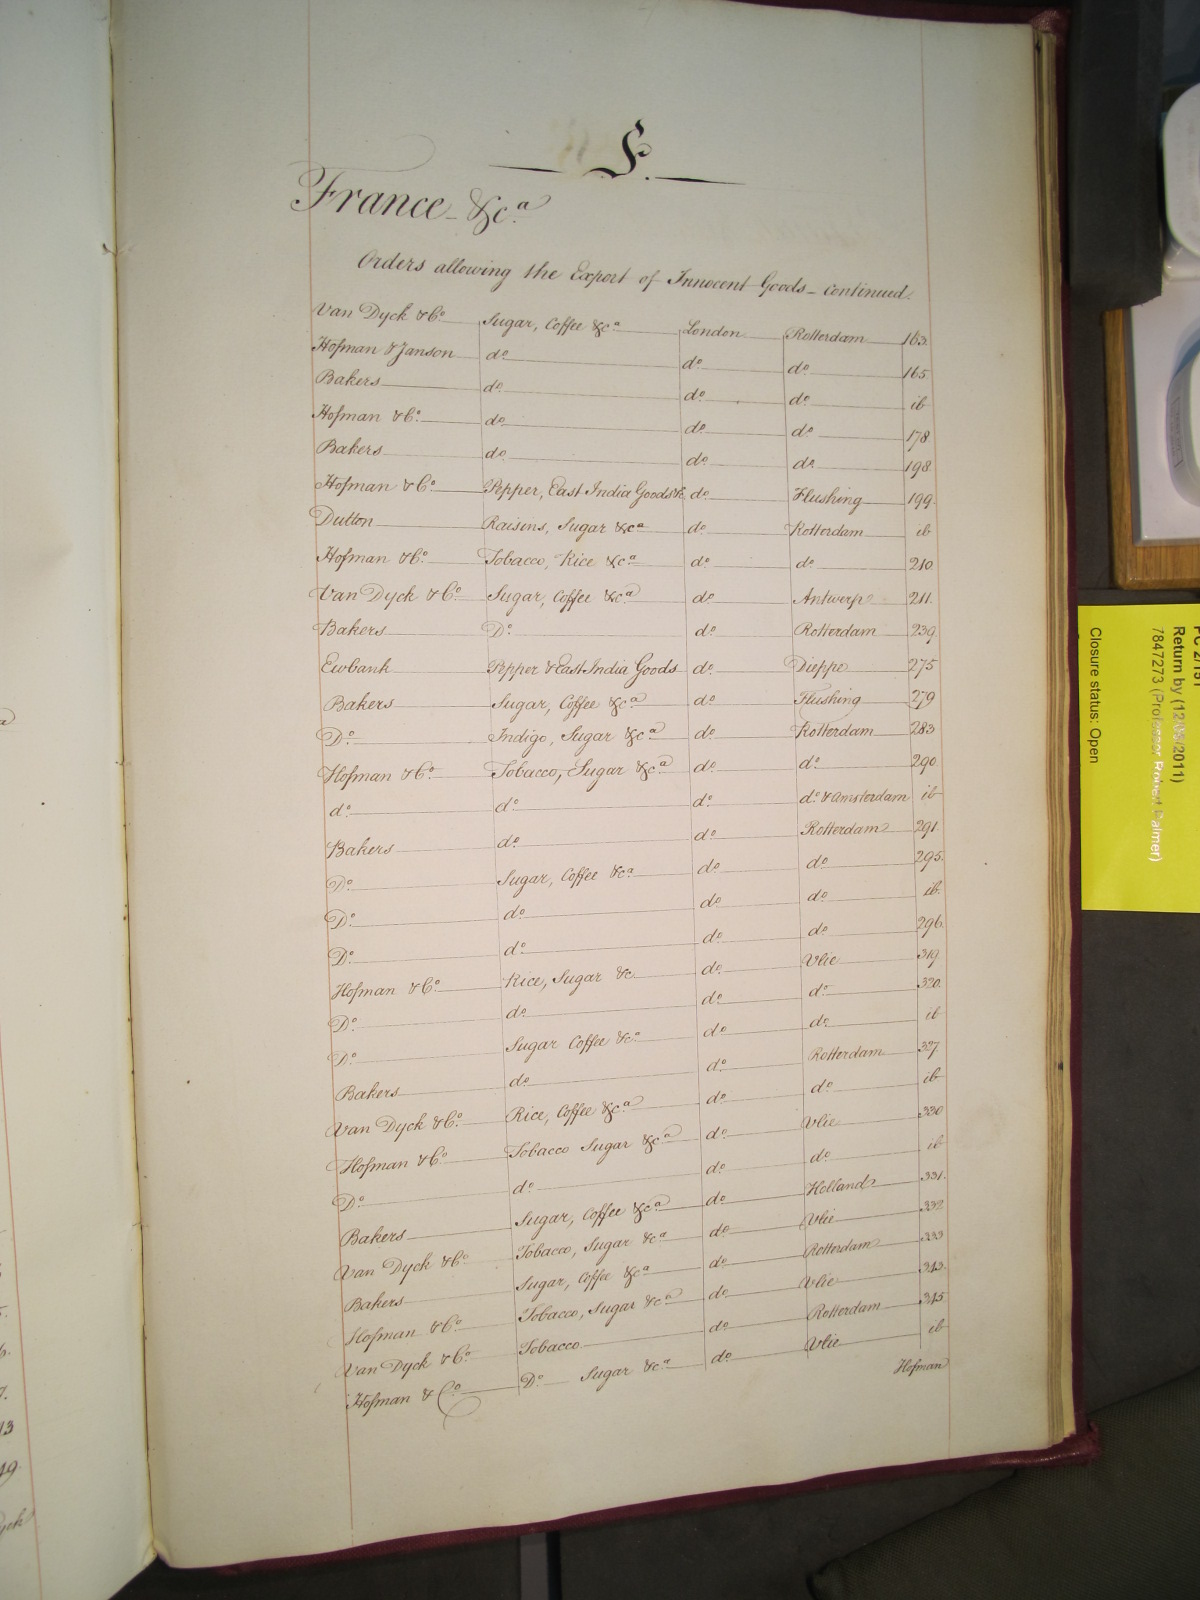 F.
France &c.a
Orders allowing the Export of Innocent Goods_ continued.
Van Dyck & Co. Sugar, Coffee &c.a London Rotterdam 163.
Hofman & Janson do. do. do. 165
Bakers do. do. do. ib
Hofman & Co. do. do. do. 178
Bakers do. do. do. 198
Hofman & Co. Pepper, East India Goods & do. Flushing 199
Dutton Raisins, Sugar &c.a do. Rotterdam ib
Hofman & Co. Tobacco, Rice &c.a do. do. 210
Van Dyck & Co. Sugar, Coffee &c.a do. Antwerp 211.
Bakers Do. do. Rotterdam 239
Ewbank Pepper & East India Goods do. Dieppe 275
Bakers Sugar, Coffee &c.a do. Flushing 279
Do. Indigo, Sugar &c.a do. Rotterdam 283
Hofman & Co. Tobacco, Sugar &c.a do. do. 290
do. do. do. do. & Amsterdam ib
Bakers do. do. Rotterdam 291
Do. Sugar, Coffee &c.a do. do. 295.
Do. do. do. do. ib.
Do. do. do. do. 296.
Hofman & Co. Rice, Sugar &c do. Vlie 319
Do. do. do. do. 320.
Do. Sugar Coffee &c.a do. do. ib
Bakers do. do. Rotterdam 327
Van Dyck & Co. Rice, Coffee &c.a do. do. ib
Hofman & Co. Tobacco Sugar &c.a do. Vlie 330
Do. do. do. do. ib
Bakers Sugar, Coffee &c.a do. Holland 331.
Van Dyck & Co. Tobacco, Sugar &c.a do. Vlie 332
Bakers Sugar, Coffee &c.a do. Rotterdam 333
Hofman & Co. Tobacco, Sugar &c.a do. Vlie 343.
Van Dyck & Co. Tobacco do. Rotterdam 345
Hofman & Co. Do. Sugar &c.a do. Vlie ib
Hofman
Return by (12/05/2011)
7847273 (Professor Robert Palmer)
Closure status: Open